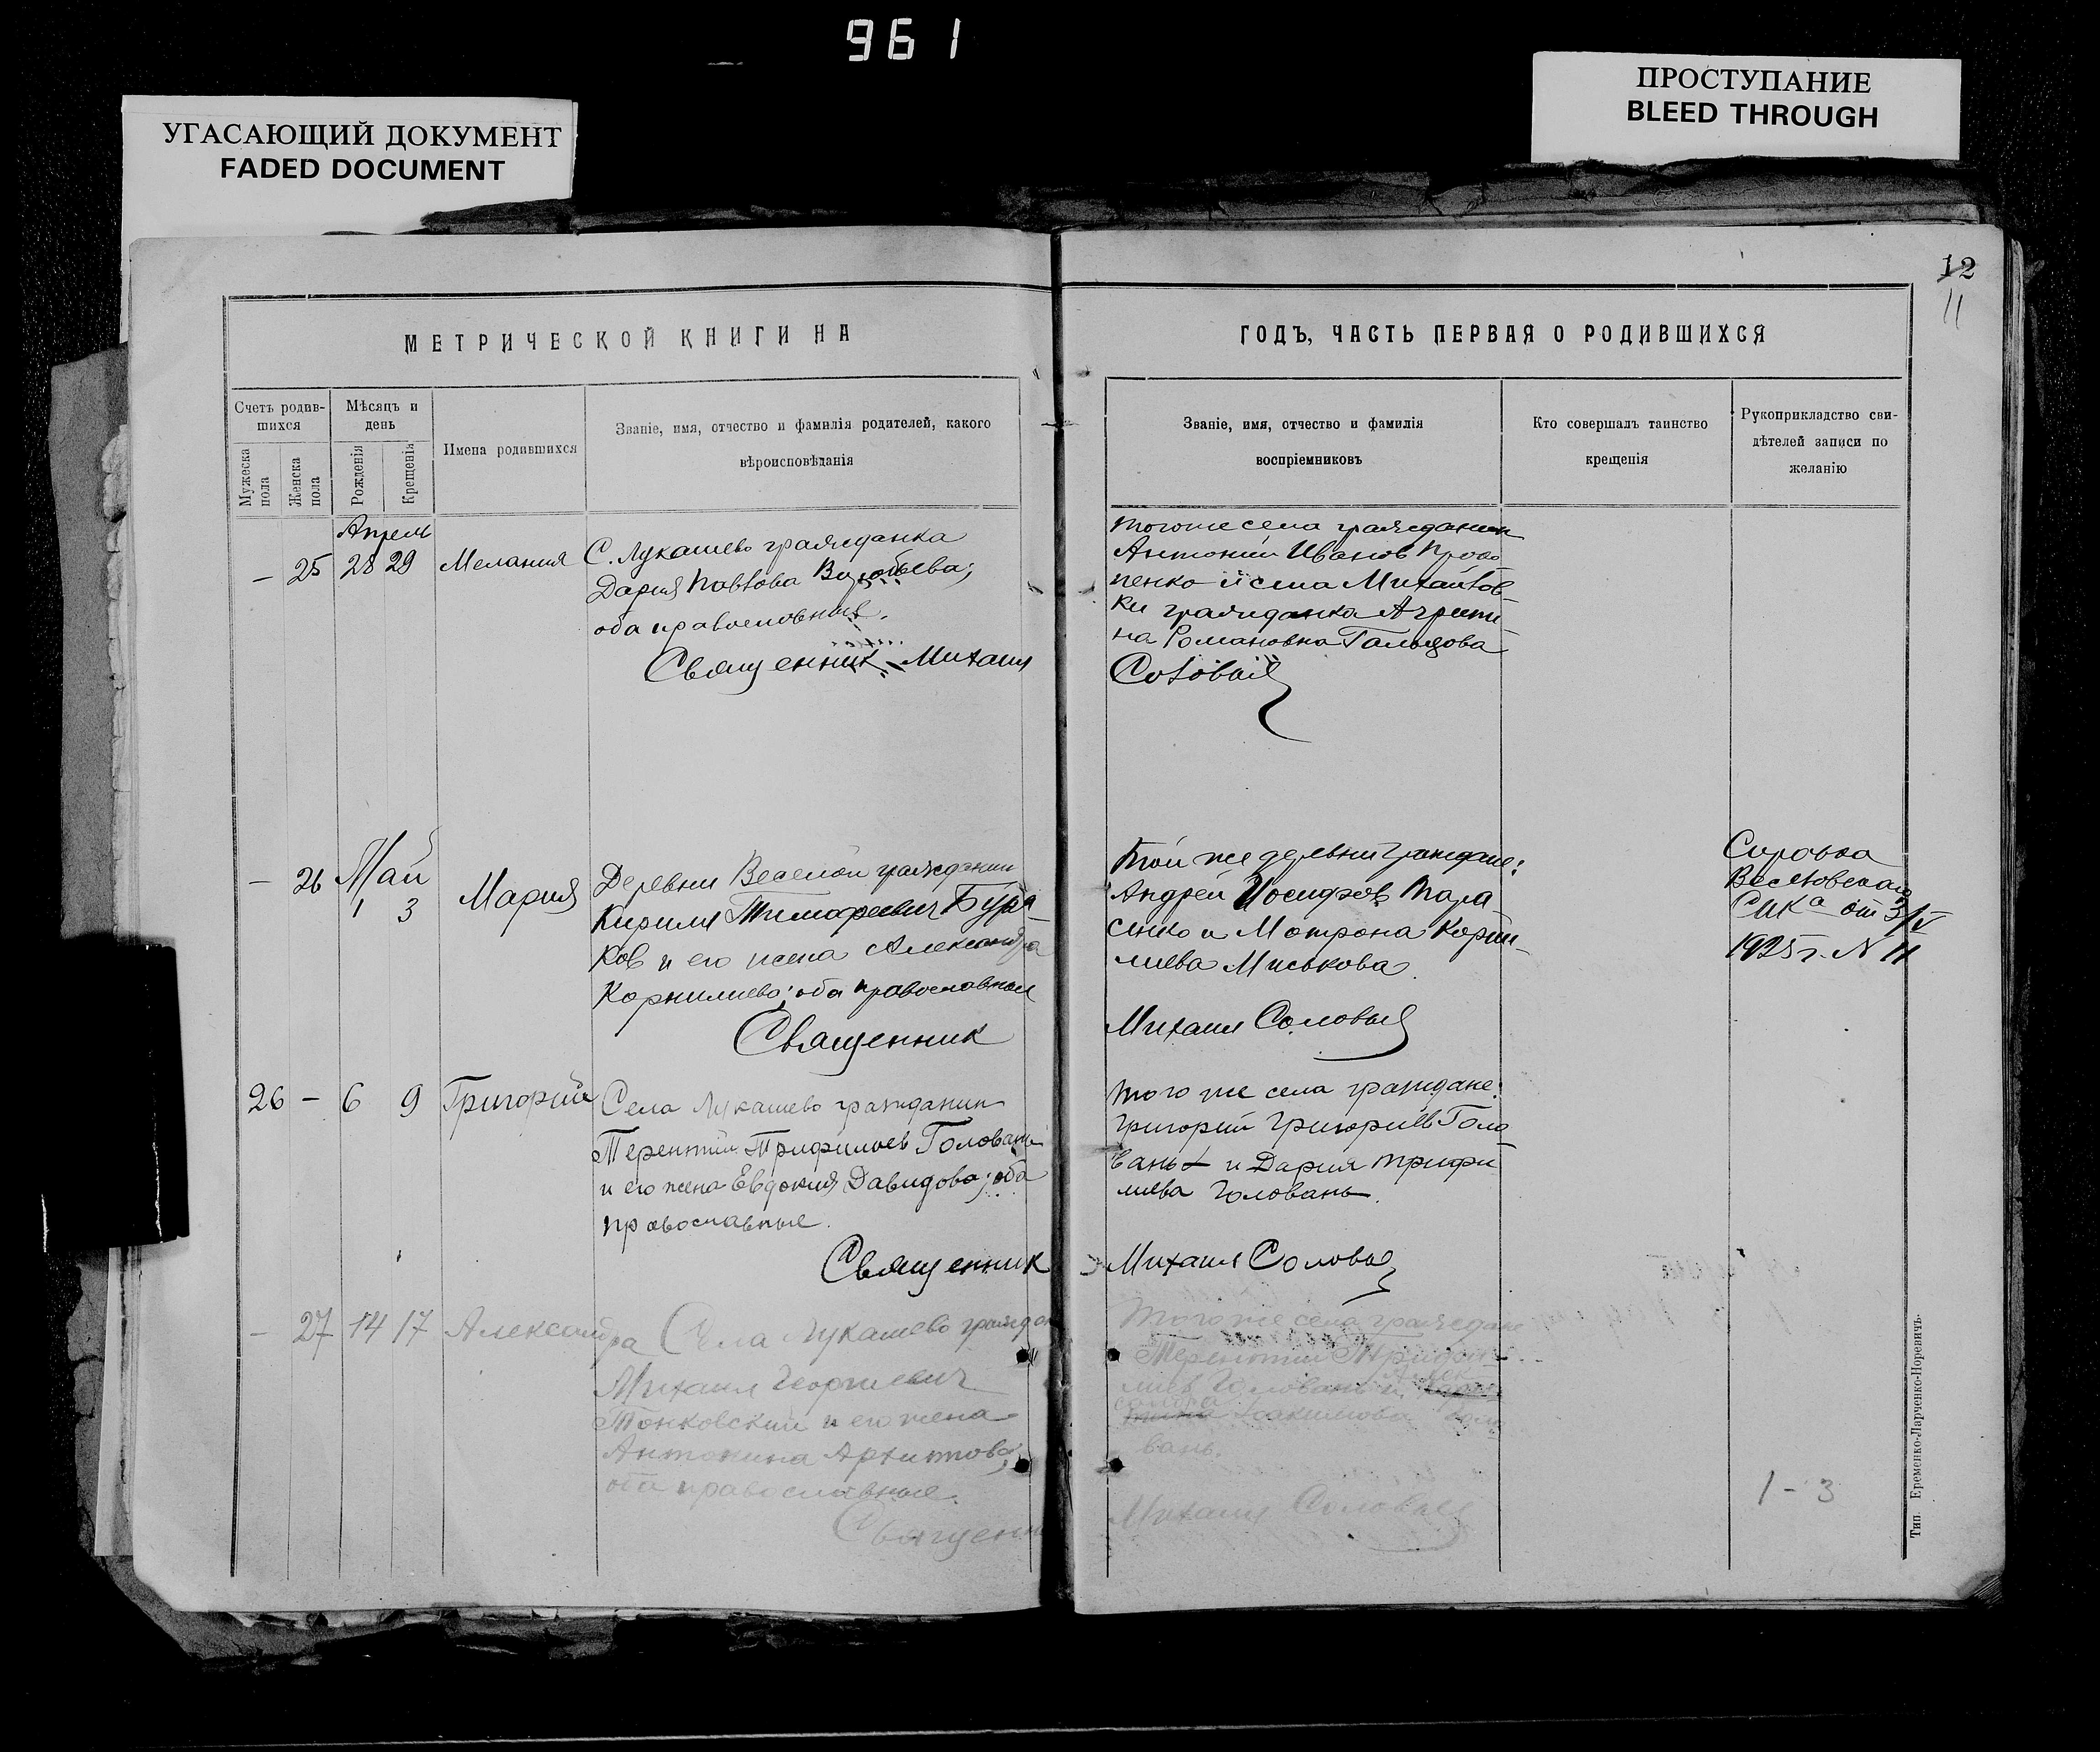 961
УГАСАЮЩИЙ ДОКУМЕНТ
FADED DOCUMENT
ПРОСТУПАНИЕ
BLEED THROUGH
12
11
МЕТРИЧЕСКОЙ КНИГИ НА
ГОДЪ, ЧАСТЬ ПЕРВАЯ О РОДИВШИХСЯ
Счетъ родив-
шихся
Мужеска пола
Женска пола
Мѣсяцъ и
день
Рожденія
Крещенія
Имена родившихся
Званіе, имя, отчество и фамилія родителей, какого
вѣроисповѣданія
Званіе, имя, отчество и фамилія
воспріемниковъ
Кто совершалъ таинство
крещенія
Рукоприкладство сви-
дѣтелей записи по
желанію
Апрель
– 25 28 29 Мелания
С. Лукашево гражданка
Дария Павлова Воробьева;
оба православные.
Священник Михаил
тогоже села гражданин
Антоний Иванов
пенко и села Михайлов-
ки гражданка Агрипи
на Романовна
Соловьев
– 26 Май
1 3 Мария
Деревни Веселой гражданин
Кирилл Тимофеевич Бура-
ков и его жена Александра
Корнилиева; оба православные
Священник
Той же деревни граждане:
Андрей Иосифов Тара
сенко и Мотрона Корни-
лиева Миськова
Михаил Соловьев
Справка
Веселовского
СИКа от 3/V
1925 г. N 11
26 – 6 9 Григорий
Села Лукашево гражданин
Терентий Трифилиев Головань
и его жена Евдокия Давидова; оба
православные.
Священник
того же села граждане:
Григорий Григориев Голо-
вань и Дария Трифи
лиева Головань.
Михаил Соловьев
– 27 14 17 Александ
ра Села Лукашево граждан
Михаил Георгиевич
Тонковский и его жена
Антонина Архипова;
оба православные.
Священн
Тогоже села граждане
Терентий Трифи-
лиев Головань и
вань.
Михаил Соловьев
1 - 3
Тип. Еременко-Ларченко-Норевичъ.